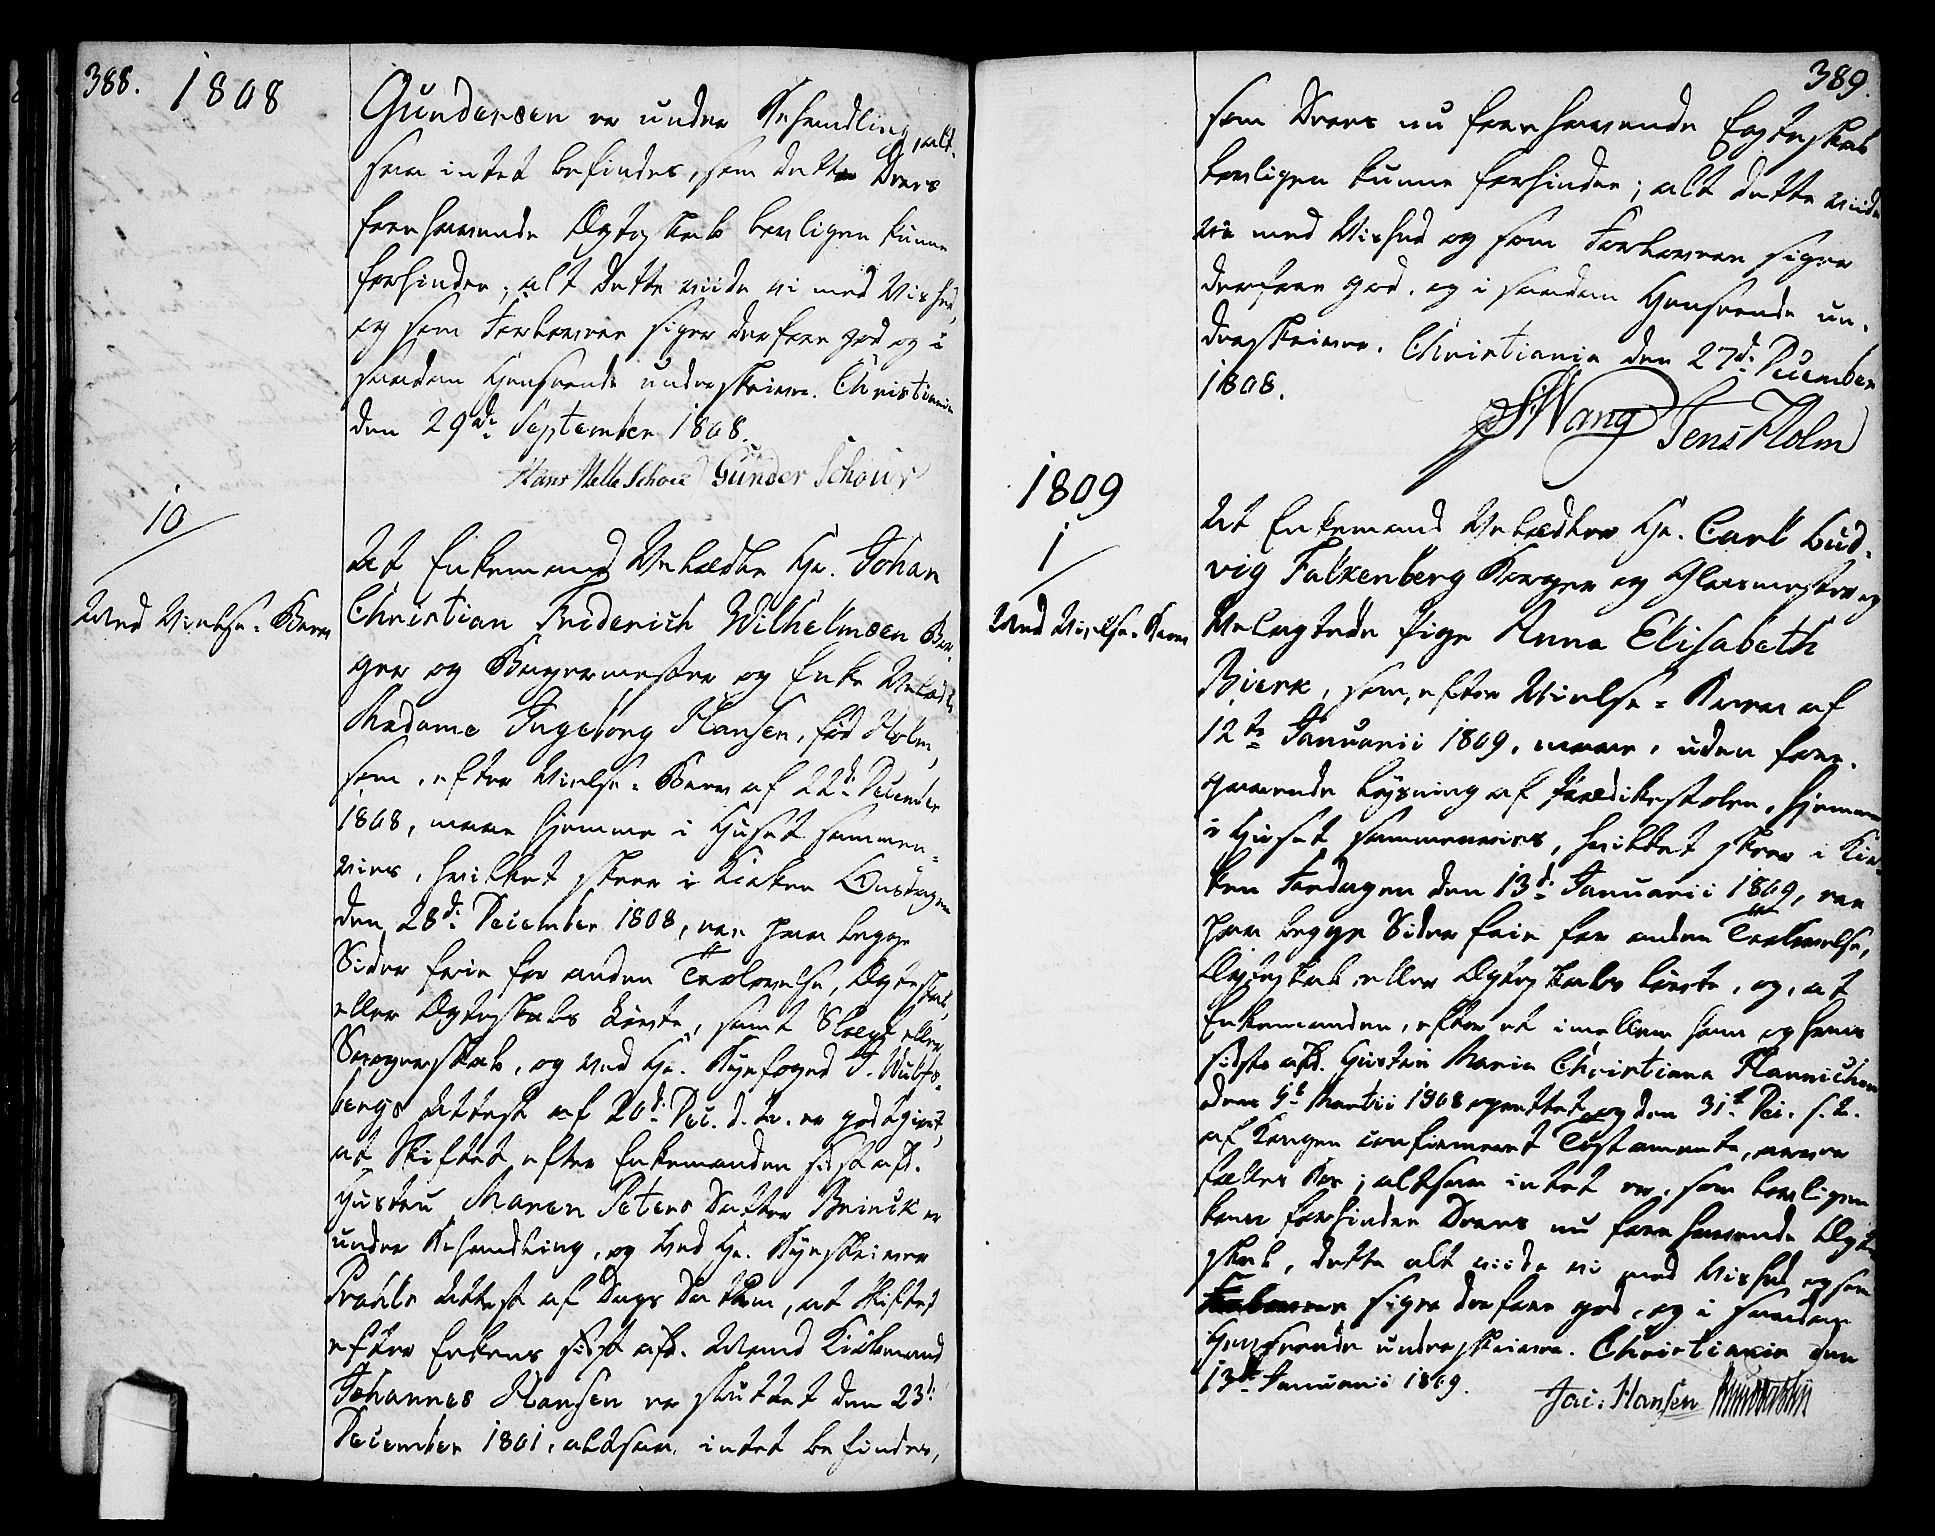 388. 1808
Gundersen er under Behandling, alt-
saa intet befindes, som dette Deres
forehavende Ægteskab lovligen kunne
forhindre; alt dette viide vi med Vished,
og som Forlovere siger derfore god og i
saadan Henseende underskrive. Christiania
den 29de September 1808.
Hans Melle Schou Gunder Schour
10
Med Vielse-Brev
At Enkemand Velædle Hr. Johan
Christian Friderich Wilhelmsen Bor-
ger og Bagermester og Enke Velædle
Madame Ingeborg Hansen, fød Holm,
som, efter Vielse-Brev af 22de December
1808, maae hjemme i Huset sammen-
vies, hvilket skeer i Kirken Onsdagen
den 28de December 1808, ere paa begge
Sider frie for anden Trolovelse, Ægteskab,
eller Ægteskabs Løvte, samt Slægt eller
Svogerskab, og ved Hr. Byefoged J. Wulfs-
bergs Attest af 20de Dec. d. A. er godtgiort,
at Skiftet efter Enkemandens sidst afd.
Hustru Maren Peters Datter Brinck er
under Behandling, og ved Hr. Byeskriver
Attest af Dags Datum, at Skiftet
efter Enkens sidst afd. Mand Kiøbmand
Johannes Hansen er sluttet den 23de
December 1801, altsaa intet befindes,
389.
som Deres nu forehavende Egteskab
lovligen kunne forhindre; alt dette viide
vi med Vished og som Forlovere siger
derfore god, og i saadan Henseende un-
derskrive. Christiania den 27de December
1808.
Wang Jens Holm
1809
1
Med Vielse-Brev
At Enkemand Velædle Hr. Carl Lud-
vig Falkenberg Borger og Glarmester og
Velagtede Pige Anna Elisabeth
Bierk, som, efter Vielse-Brev af
12te Januarii 1809, maae, uden fore-
gaaende Lysning af Prædikestolen, hjemme
i Huset sammenvies, hvilket skeer i Kir-
ken Fredagen den 13de Januarii 1809, ere
paa begge Sider frie for anden Trolovelse,
Ægteskab eller Ægteskabs Løvte, og, at
Enkemanden, efter et imellem ham og hans
sidste afd. Hustru Maria Christiana
den Martii 1808 oprettet og den 31te Dec. s. A.
af Kongen confirmeret Testamente,
fælles Boe; altsaa intet er, som lovligen
kan forhindre Deres nu forehavende Ægte-
skab, dette alt viide vi med Vished og som
Forlovere siger derfore god, og i saadan
Henseende underskrive. Christiania den
13de Januarii 1809.
Jac: Hansen